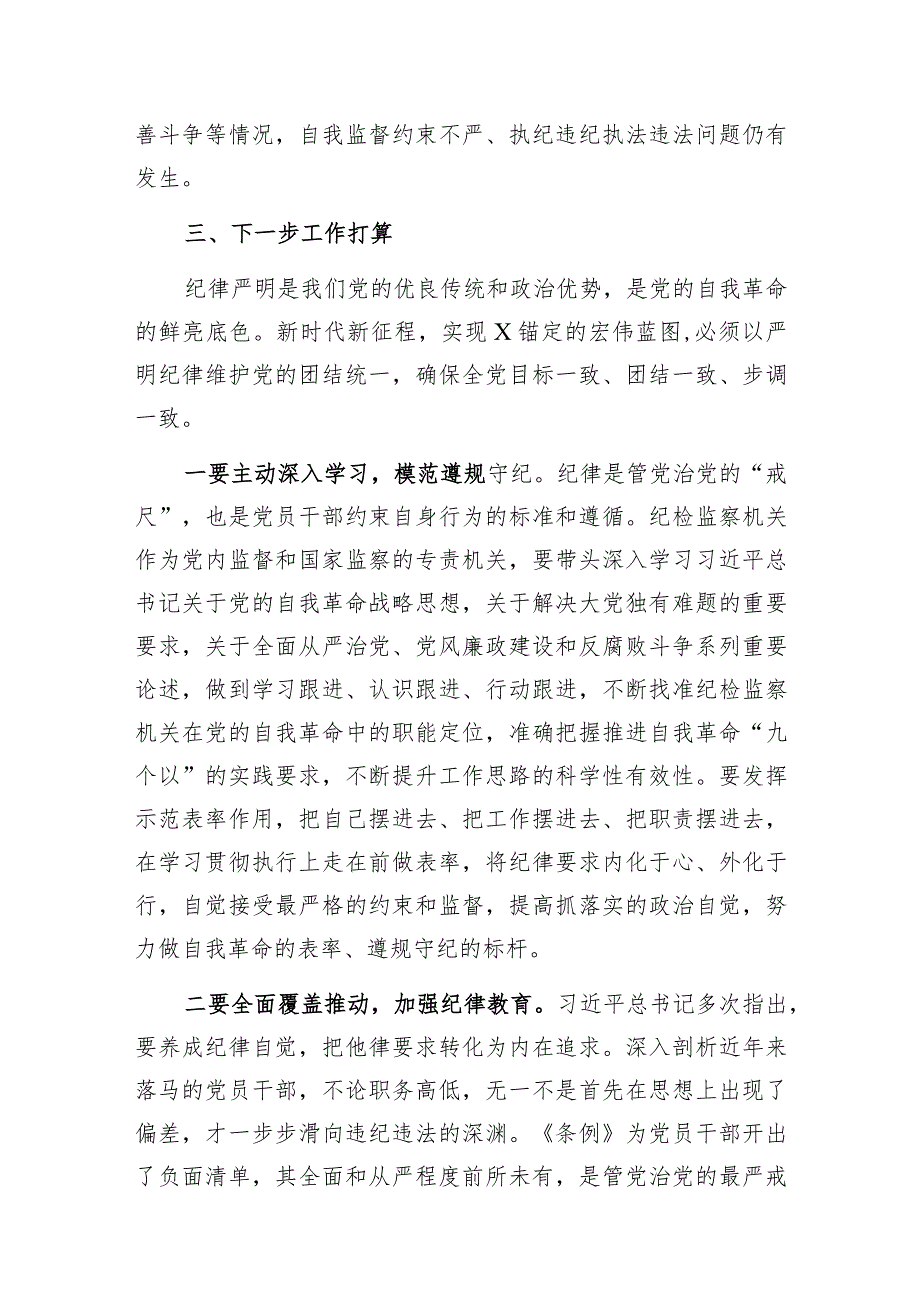 善斗争等情况，自我监督约束不严、执纪违纪执法违法问题仍有
发生。
三、下一步工作打算
纪律严明是我们党的优良传统和政治优势，是党的自我革命
的鲜亮底色。新时代新征程，实现 X 锚定的宏伟蓝图,必须以严
明纪律维护党的团结统一，确保全党目标一致、团结一致、步调
一致。
一要主动深入学习，模范遵规守纪。纪律是管党治党的“戒
尺”，也是党员干部约束自身行为的标准和遵循。纪检监察机关
作为党内监督和国家监察的专责机关，要带头深入学习习近平总
书记关于党的自我革命战略思想，关于解决大党独有难题的重要
要求，关于全面从严治党、党风廉政建设和反腐败斗争系列重要
论述，做到学习跟进、认识跟进、行动跟进，不断找准纪检监察
机关在党的自我革命中的职能定位，准确把握推进自我革命“九
个以”的实践要求，不断提升工作思路的科学性有效性。要发挥
示范表率作用，把自己摆进去、把工作摆进去、把职责摆进去，
在学习贯彻执行上走在前做表率，将纪律要求内化于心、外化于
行，自觉接受最严格的约束和监督，提高抓落实的政治自觉，努
力做自我革命的表率、遵规守纪的标杆。
二要全面覆盖推动，加强纪律教育。习近平总书记多次指出，
要养成纪律自觉，把他律要求转化为内在追求。深入剖析近年来
落马的党员干部，不论职务高低，无一不是首先在思想上出现了
偏差，才一步步滑向违纪违法的深渊。《条例》为党员干部开出
了负面清单，其全面和从严程度前所未有，是管党治党的最严戒